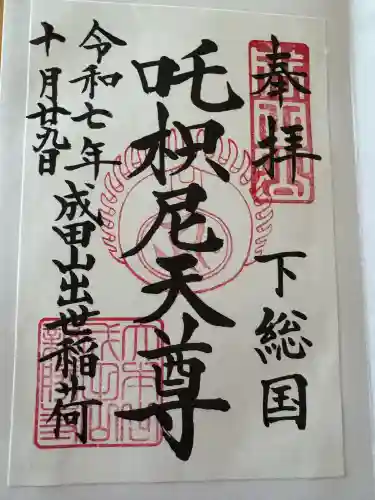 奉拝
下総国
吒枳尼天尊
令和七年
十月廿九日
成田山出世稲荷